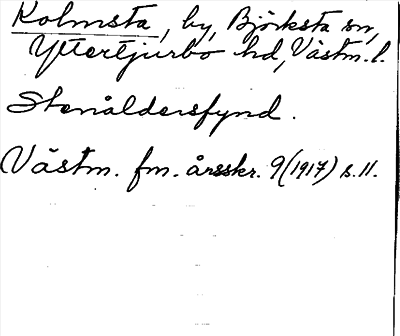 Kolmsta, by, Björksta sn,
Yttertjurbo hd, Västm. l.
Stenåldersfynd.
Västm. fm. årsskr. 9 (1917) s. 11.